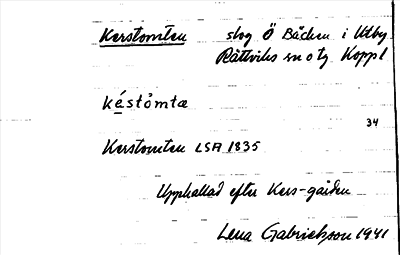 Kerstomten slog Ö Bäcken i Utby
Rättviks sn o tg Koppl
késtòmtæ
34
Kerstomten LSA 1835
Upphallad efter Kers-gården
Lena Gabrielsson 1941